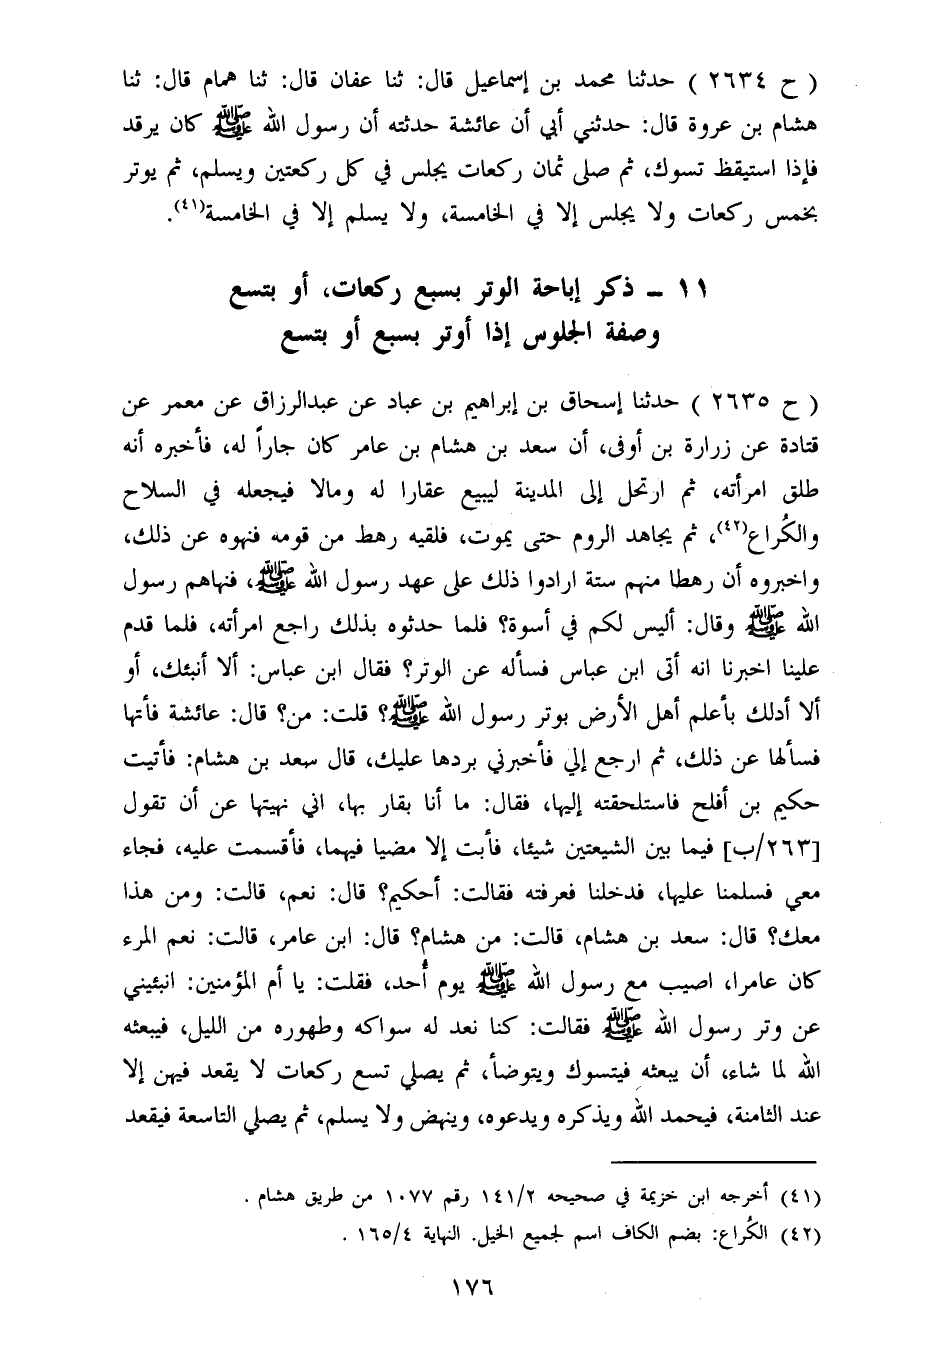 ( ح ٢٦٣٤ ) حدثنا محمد بن إسماعيل قال: ثنا عفان قال: ثنا همام قال: ثنا
هشام بن عروة قال: حدثني أبي أن عائشة حدثته أن رسول الله ﷺ كان يرقد
فإذا استيقظ تسوك، ثم صلى ثمان ركعات يجلس في كل ركعتين ويسلم، ثم يوتر
بخمس ركعات ولا يجلس إلا في الخامسة، ولا يسلم إلا في الخامسة(٤١).
١١ ـ ذكر إباحة الوتر بسبع ركعات، أو بتسع
وصفة الجلوس إذا أوتر بسبع أو بتسع
( ح ٢٦٣٥ ) حدثنا إسحاق بن إبراهيم بن عباد عن عبدالرزاق عن معمر عن
قتادة عن زرارة بن أوفى، أن سعد بن هشام بن عامر كان جاراً له، فأخبره أنه
طلق امرأته، ثم ارتحل إلى المدينة ليبيع عقارا له ومالا فيجعله في السلاح
والكُراع(٤٢)، ثم يجاهد الروم حتى يموت، فلقيه رهط من قومه فنهوه عن ذلك،
واخبروه أن رهطا منهم ستة ارادوا ذلك على عهد رسول الله ﷺ، فنهاهم رسول
الله ﷺ وقال: أليس لكم في أسوة؟ فلما حدثوه بذلك راجع امرأته، فلما قدم
علينا اخبرنا انه أتى ابن عباس فسأله عن الوتر؟ فقال ابن عباس: ألا أنبئك، أو
ألا أدلك بأعلم أهل الأرض بوتر رسول الله ﷺ؟ قلت: من؟ قال: عائشة فأتها
فسألها عن ذلك، ثم ارجع إلي فأخبرني بردها عليك، قال سعد بن هشام: فأتيت
حكيم بن أفلح فاستلحقته إليها، فقال: ما أنا بقار بها، اني نهيتها عن أن تقول
[٢٦٣/ب] فيما بين الشيعتين شيئا، فأبت إلا مضيا فيهما، فأقسمت عليه، فجاء
معي فسلمنا عليها، فدخلنا فعرفته فقالت: أحكيم؟ قال: نعم، قالت: ومن هذا
معك؟ قال: سعد بن هشام، قالت: من هشام؟ قال: ابن عامر، قالت: نعم المرء
كان عامرا، اصيب مع رسول الله ﷺ يوم أُحد، فقلت: يا أم المؤمنين: انبئيني
عن وتر رسول الله ﷺ فقالت: كنا نعد له سواكه وطهوره من الليل، فيبعثه
الله لما شاء، أن يبعثه فيتسوك ويتوضأ، ثم يصلي تسع ركعات لا يقعد فيهن إلا
عند الثامنة، فيحمد الله ويذكره ويدعوه، وينهض ولا يسلم، ثم يصلي التاسعة فيقعد
(٤١) أخرجه ابن خزيمة في صحيحه ١٤١/٢ رقم ١٠٧٧ من طريق هشام .
(٤٢) الكُراع: بضم الكاف اسم لجميع الخيل. النهاية ١٦٥/٤ .
١٧٦